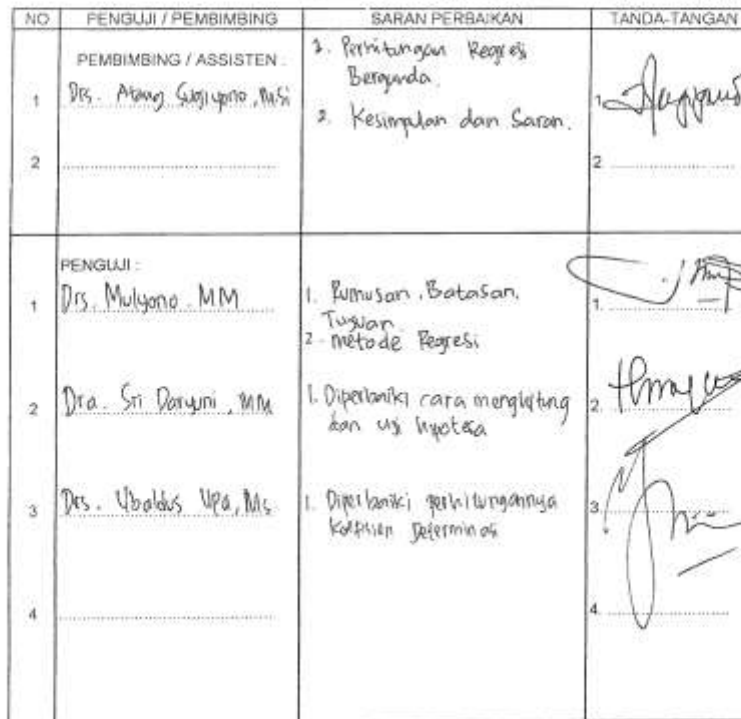 NO PENGUJI / PEMBIMBING SARAN PERBAIKAN TANDA-TANGAN
PEMBIMBING / ASSISTEN :
1 Drs. Atang Sugiyono, M.Si
1. Perhitungan Regresi
Berganda.
2. Kesimpulan dan Saran.
1.
2
2.
PENGUJI :
1 Drs. Mulyono. MM
1. Rumusan, Batasan,
Tujuan.
2. metode Regresi
1.
2 Dra. Sri Daryuni, MM
1. Diperbaiki cara menghitung
dan uji hipotesa
2.
3 Drs. Ubaldus Upa, Ms
1. Diperbaiki perhitungannya
Koefisien Determinasi
3.
4
4.